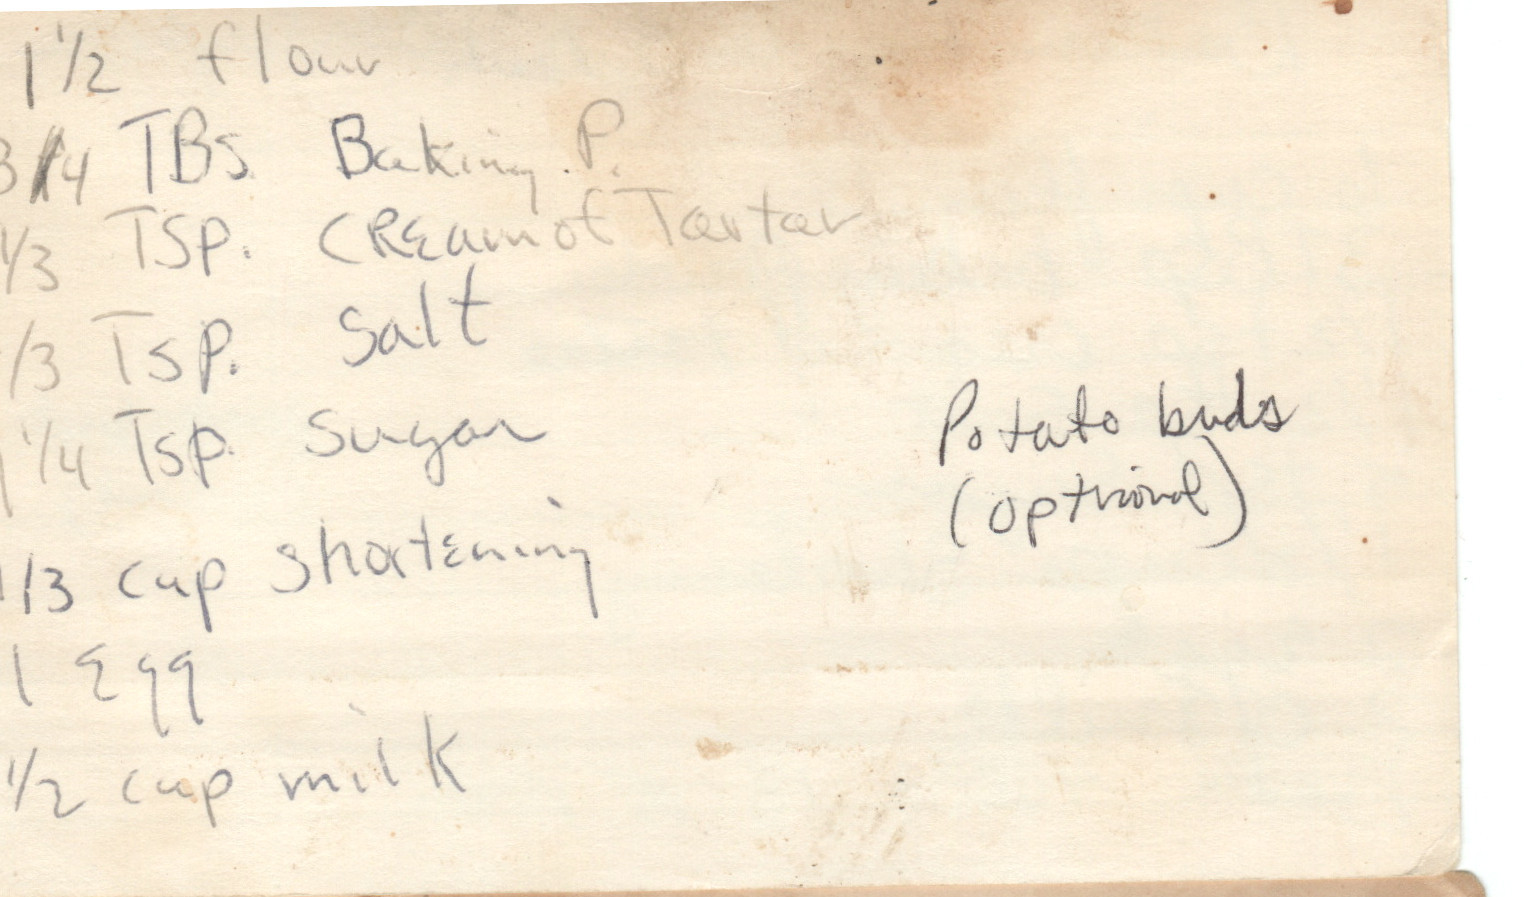 1 1/2 flour
3/4 TBS. Baking P.
1/3 TSP. CREam of Tartar
1/3 Tsp. Salt
1 1/4 Tsp. Sugar
1/3 cup shortening
1 Egg
1/2 cup milk
Potato buds
(optional)